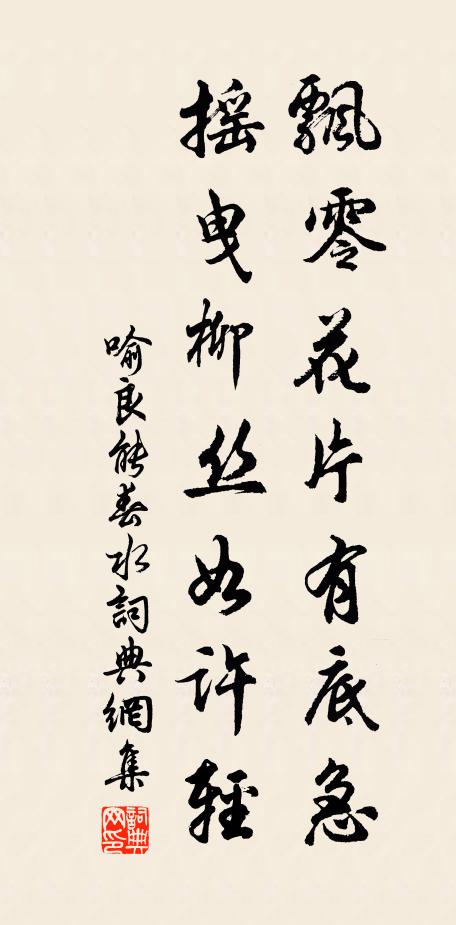 飘零花片有底急
摇曳柳丝如许轻
喻良能春水詞典網集
詞典网印